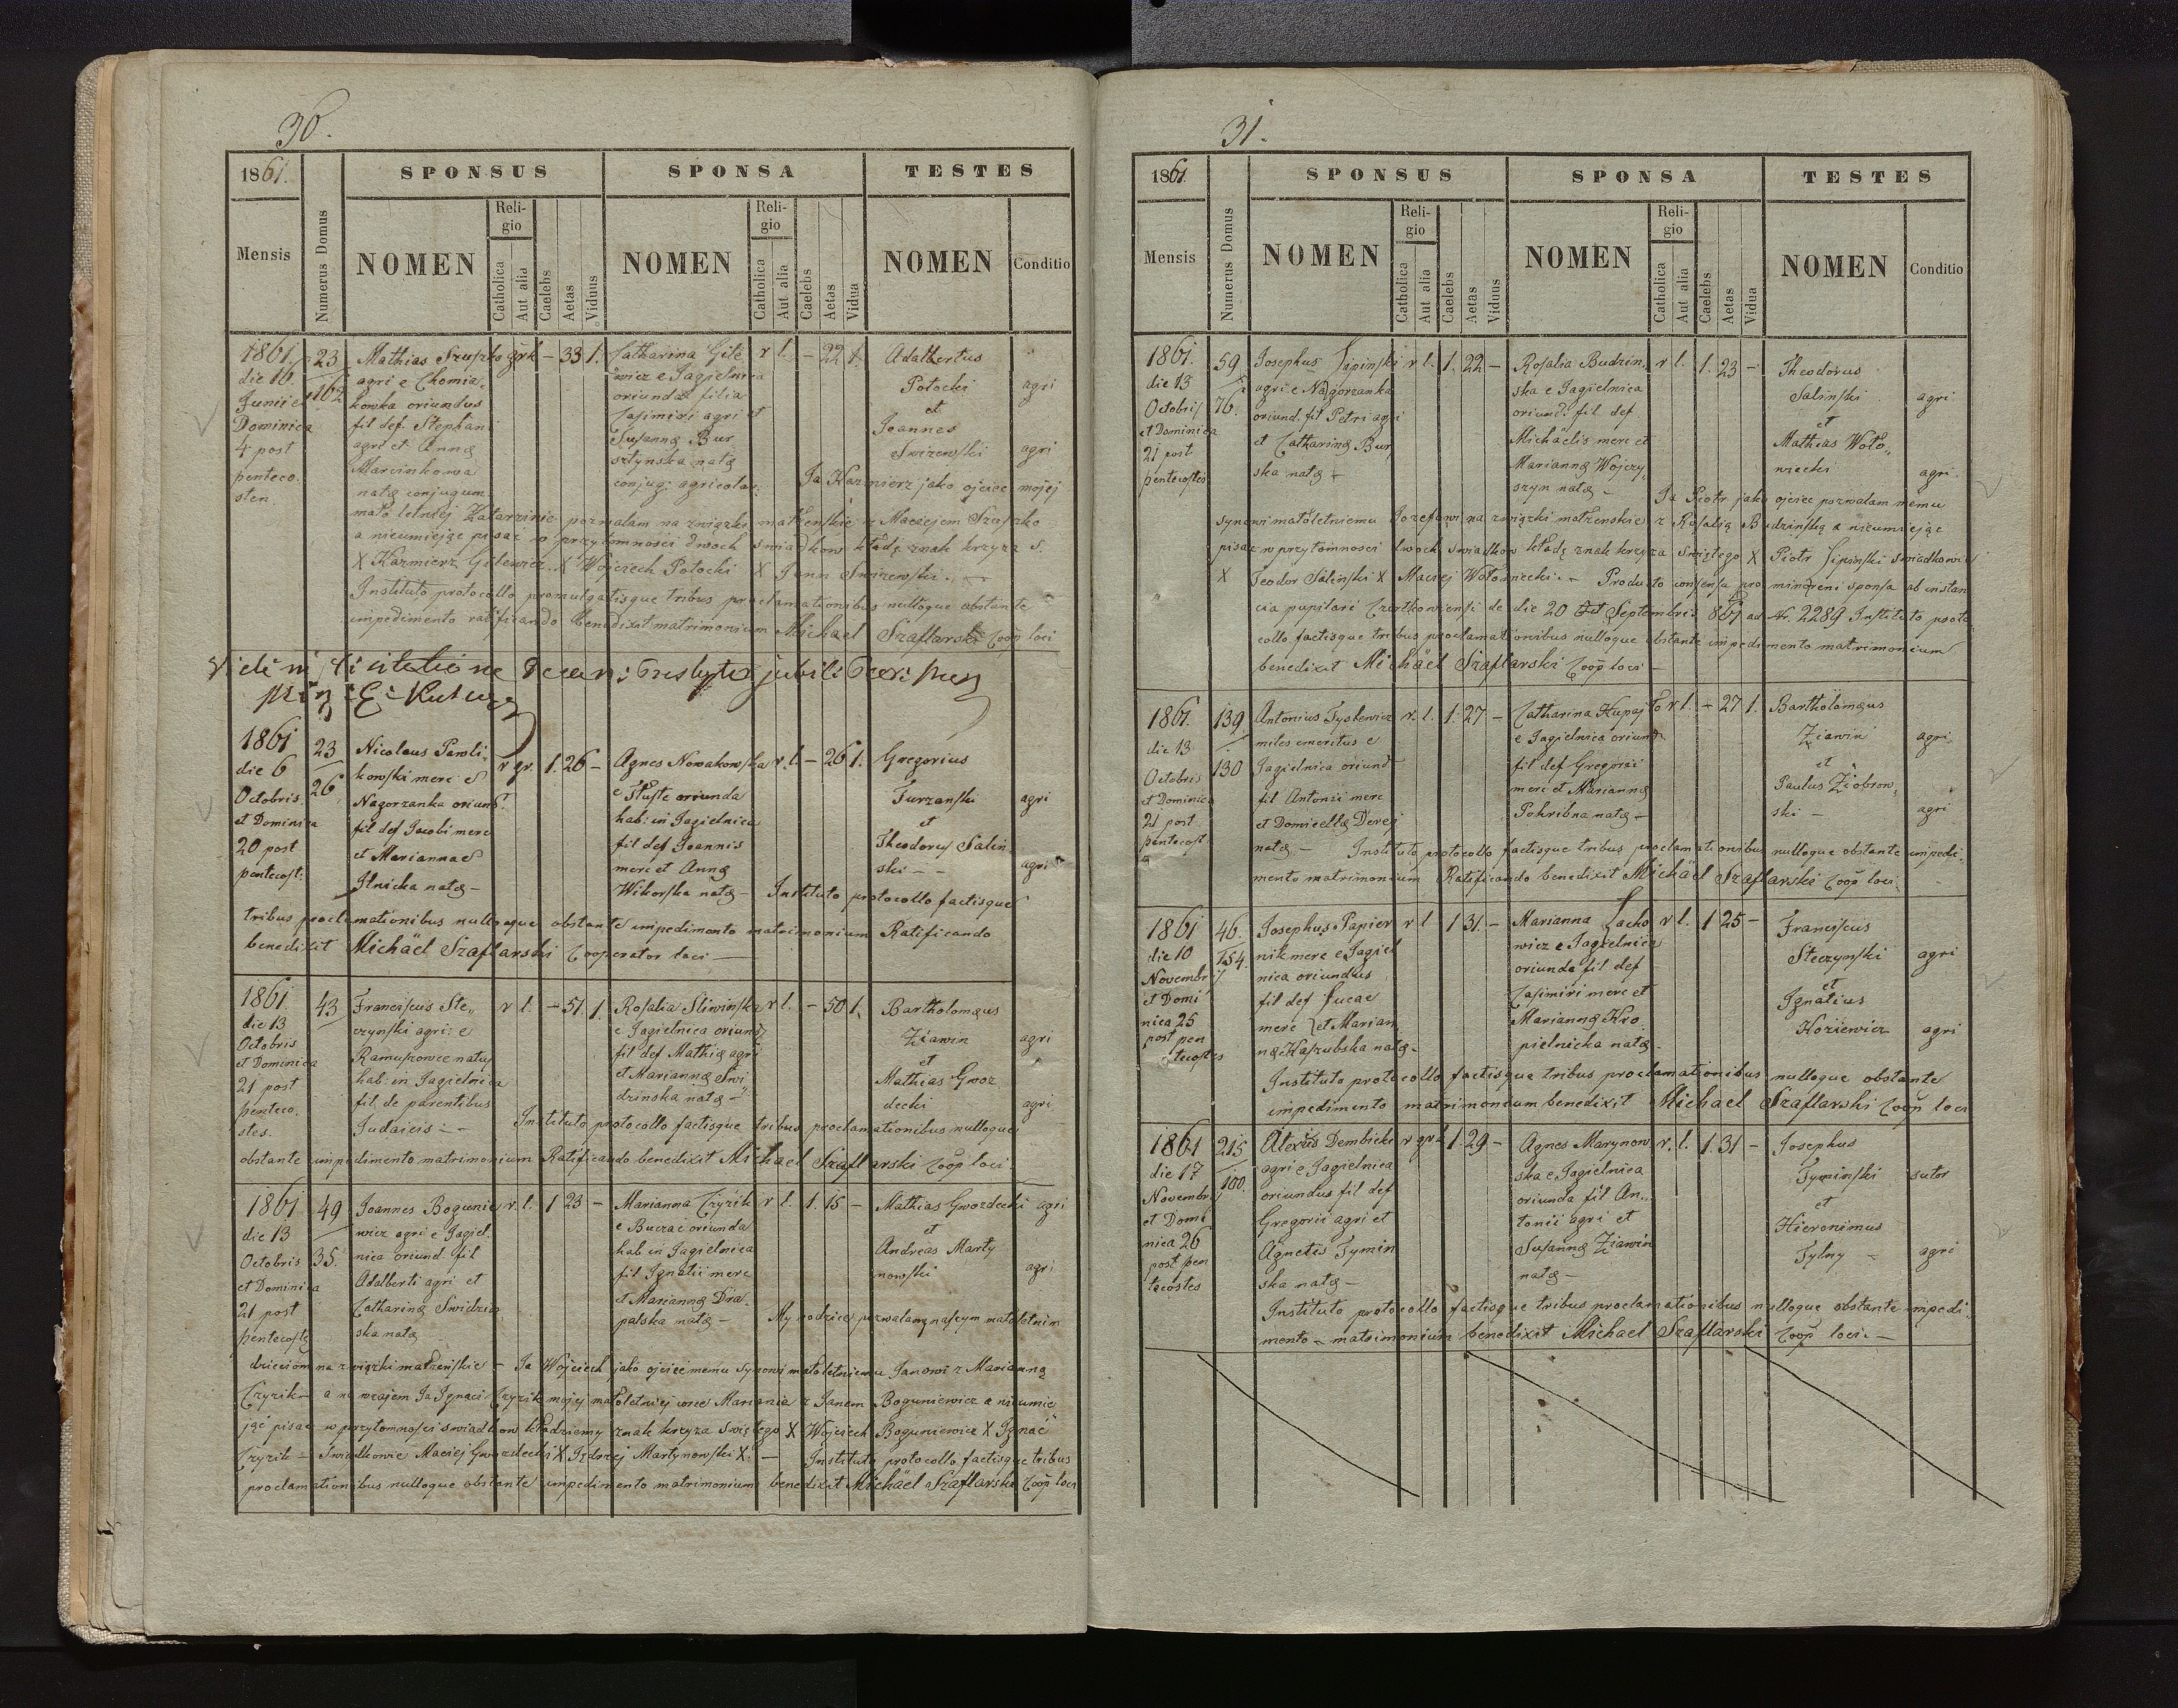 30.
1861.
SPONSUS
SPONSA
TESTES
Mensis
Numerus Domus
NOMEN
Religio
Catholica
Aut alia
Caelebs
Aetas
Viduus
NOMEN
Religio
Catholica
Aut alia
Caelebs
Aetas
Vidua
NOMEN
Conditio
1861.
die 16.
Junii et
Dominica
4 post
penteco.
sten
23
162
Mathias Szuszko
agri e Chomia.
kowka oriundus
fil def Stephani
agri et Annæ
Marcinkowa
natæ conjugum
grk - 33 1.
Catharina Gile
wicz e Jagielnica
oriunda filia
Casimiri agri et
Susannæ Bur
sztynska natæ
conjug: agricolar:
r l. - 22 1.
Adalbertus
Potocki agri
et
Joannes
Swizewski agri
Ja Kazmierz jako ojciec mojej
mało letniej Katarzinie pozwalam na związki małżenskie z Maciejem Szuszko
a nieumiejąc pisac w przytomnosci dwoch swiadkow kładę znak krzyza S.
X Kazmierz Gilewicz. X Wojciech Potocki X Jann Swizewski.
Instituto protocollo promulgatisque tribus proclamationibus nulloque obstante
impedimento ratificando benedixit matrimonium Michael Szaflarski Coop loci
1861
die 6
Octobris
et Dominica
20 post
pentecost:
23
26
Nicolaus Pawli.
kowski merc e
Nagorzanka oriund.
fil def Jacobi merc
et Mariannae
Ilnicka natæ -
r gr. 1. 26 -
Agnes Nowakowska
e Tłuste oriunda
hab: in Jagielnica
fil def Joannis
merc et Annæ
Wikorska natæ -
r. l. - 26 1.
Gregorius
Turzanski agri
et
Theodorus Salin
ski - - agri
Instituto protocollo factisque
tribus proclamationibus nulloque obstante impedimento matrimonium Ratificando
benedixit Michäel Szaflarski Cooperator loci -
1861
die 13
Octobris
et Dominica
21 post
penteco.
stes.
43
Franciscus Ste„
czynski agri: e
Ramuszowce natus
hab: in Jagielnica
fil. de parentibus
Judaicis: -
r l. - 51. 1.
Rosalia Sliwinska
e Jagielnica oriund
fil def Mathiæ agri
et Mariannæ Swi
drinska natæ -
r l. - 50 1.
Bartholomæus
Ziawin agri
et
Mathias Gwoz
decki agri
Instituto protocollo factisque tribus proclamationibus nulloque
obstante impedimento matrimonium Ratificando benedixit Michael Szaflarski Coop loci.
1861
die 13
Octobris
et Dominica
21 post
pentecostes
49
35.
Joannes Bogunie
wicz agri e Jagiel.
nica oriund. fil
Adalberti agri et
Catharinæ Swidzin
ska natæ
r. l. 1 23 -
Marianna Czyzik
e Buczac oriunda
hab in Jagielnica
fil Ignatii merc
et Mariannæ Dra.
palska natæ -
r l. 1. 15 -
Mathias Gwozdecki agri
et
Andreas Marty
nowski agri
My rodzice pozwalamy naszym małoletnim
dzieciom na związki małżenskie - Ja Wojciech jako ojciec memu synowi małoletniemu Janowi z Marianną
Czyzik - a nawzajem Ja Ignaci Czyzik mojej małoletniej corce Mariannie z Janem Boguniewicz a nieumie
jąc pisac w przytomnosci swiadkow kładziemy znak krzyza świętego X Wojciech Boguniewicz X Ignac
Czyzik - Swiadkowie Maciej Gwozdecki X Jędrzej Martynowski X. - Instituto protocollo factisque tribus
proclamationibus nulloque obstante impedimento matrimonium benedixit Michäel Szaflarski Coop loci
31.
1861.
SPONSUS
SPONSA
TESTES
Mensis
Numerus Domus
NOMEN
Religio
Catholica
Aut alia
Caelebs
Aetas
Viduus
NOMEN
Religio
Catholica
Aut alia
Caelebs
Aetas
Vidua
NOMEN
Conditio
1861.
die 13
Octobris
et Dominica
21 post
pentecostes
59
76.
Josephus Lipinski
agri e Nagorzanka
oriund. fil Petri agri
et Catharinæ Bur
ska natæ -
r l. 1. 22 -
Rosalia Budzin.
ska e Jagielnica
oriund. fil def
Michäelis merc et
Mariannæ Wojczy
szyn natæ -
r l. 1. 23 -
Theodorus
Salinski agri
et
Mathias Woło„
niecki agri.
Ja Piotr jako ojciec pozwalam memu
synowi małoletniemu Jozefowi na związki małzenskie z Rozalią Budzinską a nieumiejąc
pisac w przytomnosci dwoch swiadkow kładę znak krzyza swiętego X Piotr Lipinski swiadkowie
X Teodor Salinski X Maciej Wołoniecki. - Producto consensu pro minoreni sponsa ab instan
cia pupilari Czortkowiensi de die 20 Septembris 861 ad Nr. 2289 Instituto proto
collo factisque tribus proclamationibus nulloque obstante impedimento matrimonium
benedixit Michäel Szaflarski Coop loci -
1861.
die 13
Octobris
et Dominica
21 post
pentecost.
139
130
Antonius Tyskewicz
miles emeritus e
Jagielnica oriund
fil Antonii merc
et Domicellæ Derej
natæ -
r. l. 1. 27 -
Catharina Hupaj ło
e Jagielnica oriund
fil def Gregorii
merc et Mariannæ
Pohribna natæ -
r l. - 27 1.
Bartholomæus
Ziawin agri
et
Paulus Ziobrow„
ski - agri
Instituto protocollo factisque tribus proclamationibus nulloque obstante impedi:
mento matrimonium Ratificando benedixit Michäel Szaflarski Coop loci.
1861
die 10
Novembris
et Domi
nica 25
post pen
tecostes
46.
154.
Josephus Papier
nik merc e Jagiel
nica oriundus
fil def Lucae
merc et Marian
næ Kaszubska natæ -
r l 1 31. -
Marianna Lacho
wicz e Jagielnica
oriunda fil def
Casimiri merc et
Mariannæ Kro
pielnicka natæ -
r l. 1 25 -
Franciscus
Steczynski agri
et
Ignatius
Koziewicz agri
Instituto protocollo factisque tribus proclamationibus nulloque obstante
impedimento matrimonium benedixit Michael Szaflarski Coop loci
1861
die 17
Novembris
et Domi
nica 26
post pen
tecostes
215
100.
Alexius Dembicki
agri e Jagielnica
oriundus fil def
Gregorii agri et
Agnetis Tymin
ska natæ -
r gr 1. 29 -
Agnes Marynow
ska e Jagielnica
oriunda fil An„
tonii agri et
Susannæ Ziawin
natæ -
r. l. 1. 31 -
Josephus
Tyminski sutor
et
Hieronimus
Tylny - agri
Instituto protocollo factisque tribus proclamationibus nulloque obstante impedi
mento - matrimonium benedixit Michael Szaflarski Coop loci. -